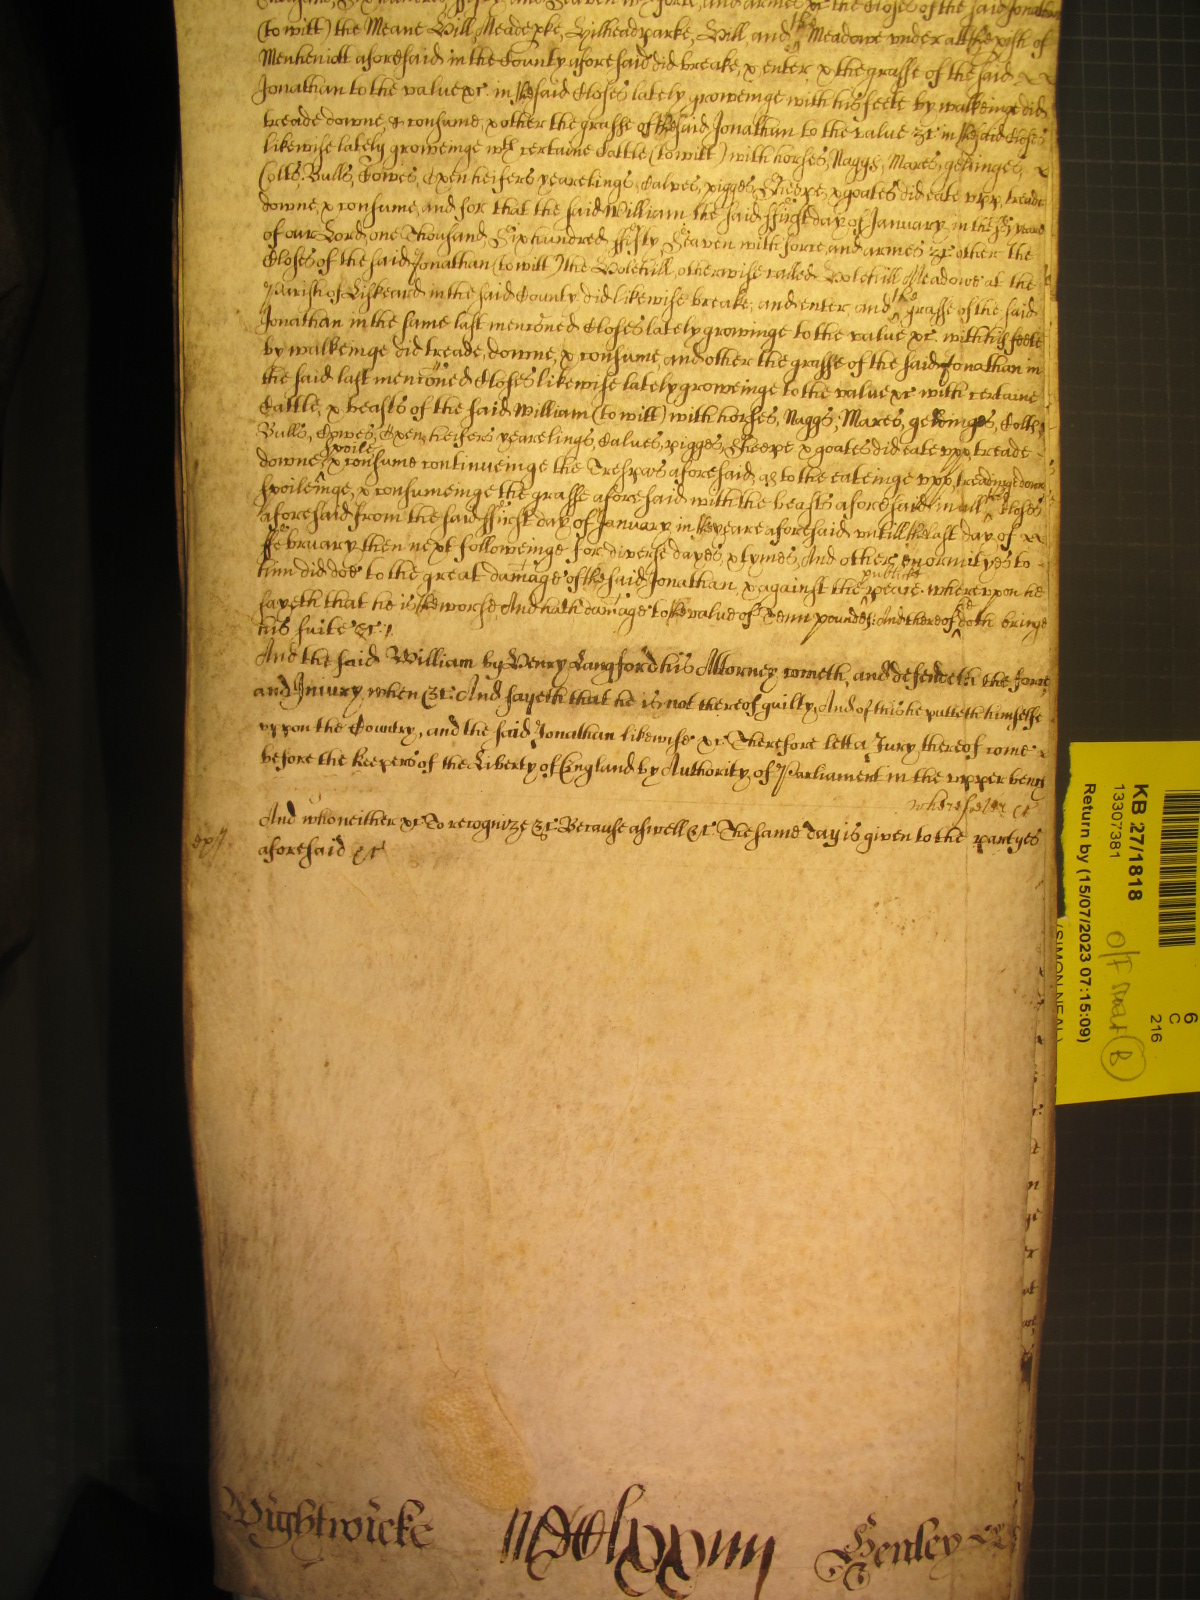 Thousand, Six hundred, ffifty, and Seaven wth force, and armes &c the Closes of the said Jonathan
(to witt) the Meane Hill, Meade pke, Hilheadparke, Hill, and the Meadowe under att the pish of
Menheniott aforesaid in the County aforesaid did breake, & enter & the grasse of the said
Jonathan to the value &c. in the said Closes lately groweinge with his feete by walkeinge did
treade downe, & consume, & other the grasse of the said Jonathan to the value &c. in the said Closes
likewise lately groweinge wth certaine Cattle (to witt) with horses, Naggs, Mares, geldinges,
Colts, Bulls, Cowes, Oxen heifers yearelings, Calves, pigges, Sheepe, & goates did eate upp, treade
downe, & consume, and for that the said William the said ffirst day of January, in the yeare
of our Lord, one Thousand Six hundred, ffifty Seaven with force, and armes &c other the
Closes of the said Jonathan (to witt) the Bolehill, otherwise called Bolehill Meadowe at the
Parish of Liskeard in the said County did likewise breake, and enter, and the grasse of the said
Jonathan in the same last menconed Closes lately growinge to the value &c. with his feete
by walkeinge did treade, downe, & consume, and other the grasse of the said Jonathan in
the said last menconed Closes likewise lately groweinge to the value &c with certaine
Cattle, & beasts of the said William (to witt) with horses, Naggs, Mares, geldinges, Colts,
Bulls, Cowes, Oxen, heifers yearelings Calves, pigges, Sheepe & goates did eate upp, treade
downe, spoile & consume continueinge the Trespas aforesaid, as to the eateinge upp, treadinge downe
spoileinge, & consumeinge the grasse aforesaid with the beasts aforesaid in all the Closes
aforesaid from the said ffirst day of January in the yeare aforesaid untill the last day of
ffebruary then next followeinge for diverse dayes, & tymes, And other enormityes to
him did doe to the great damage of the said Jonathan, & against the publike peace. whereupon he
sayeth that he is the worse And hath damage to the value of Tenn pounds: And thereof he doth bringe
his suite &c.
And the said William by Henry Langford his Attorney cometh, and defendeth the force
and Injury when &c. And sayeth that he is not thereof guilty, And of this he putteth himselfe
uppon the Country, and the said Jonathan likewise &c Therefore lett a Jury thereof come
before the Keepers of the Liberty of England by Authority of Parliament in the upper bench
wheresoever &c
And who neither &c To recognize &c. Because aswell &c The same day is given to the partyes
aforesaid &c
KB 27/1818
13307381
Return by (15/07/2023 07:15:09)
(SIMON NEAL)
6
C
216
B
Wightwicke
Henley